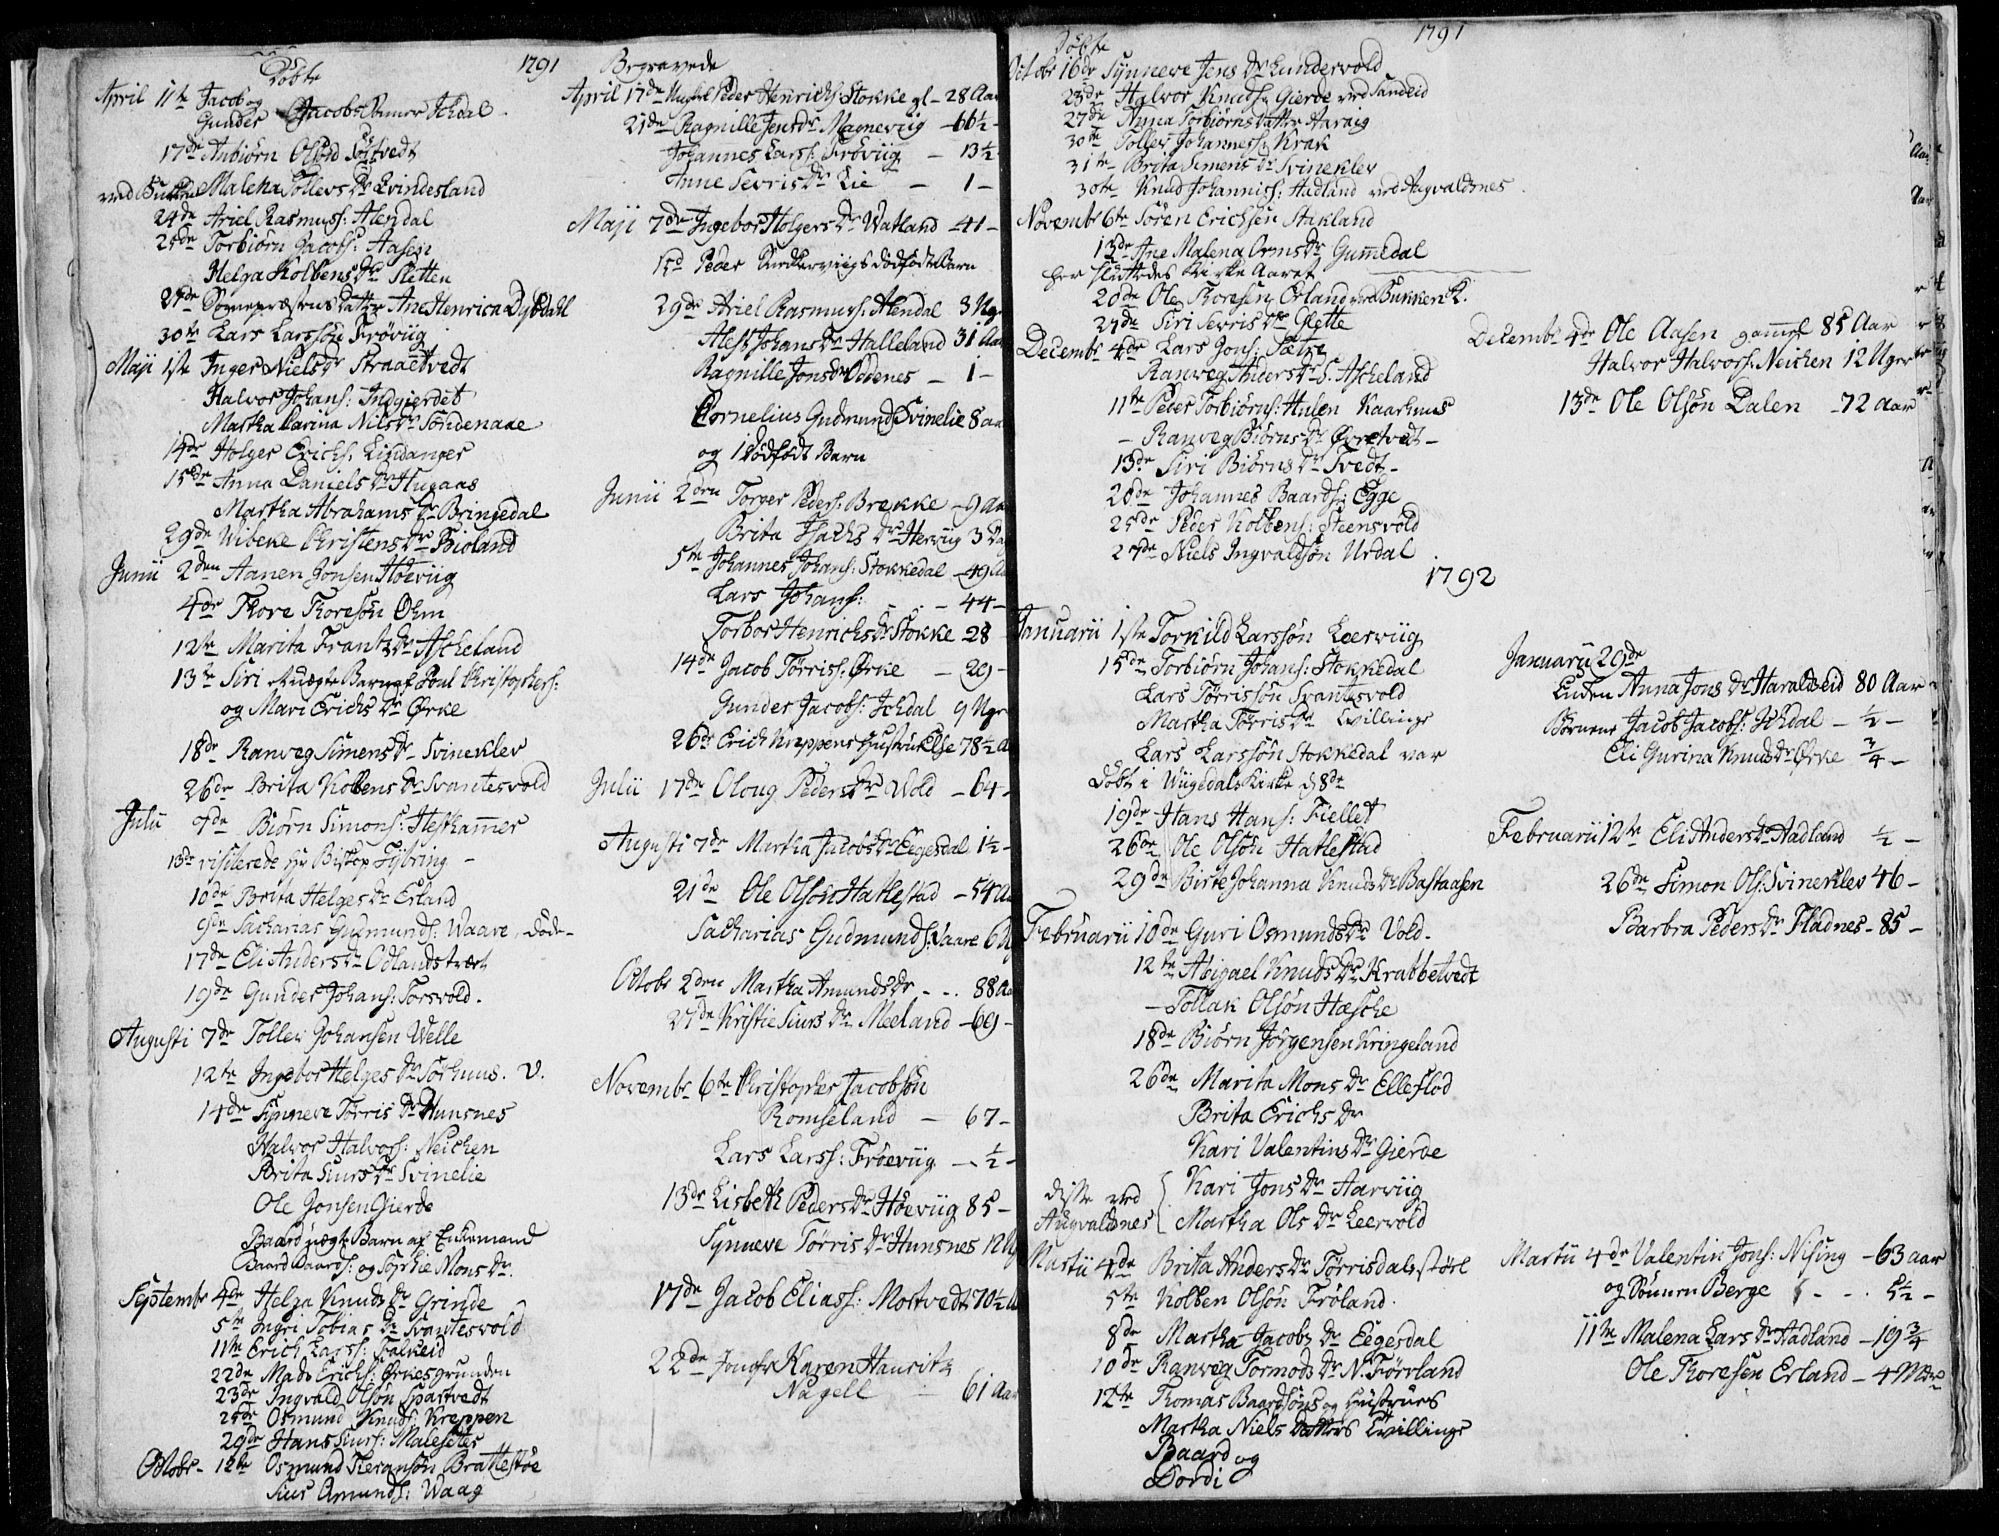 Döbte
1791
April 11te Jacob og
Gunder Jacobs Ichdal
17de Anbiörn Olsön
Malena Tollers Dr Qvindesland
24de Ariel Rasmuss: Alendal
25de Torbiörn Jacobs: Aasen
Helga Kolbens Dr Sletten
27de Sognepræstens Datter Ane Henrica Dybdahl
30te Lars Larssön Frövüg
Maji 1ste Inger Niels Dr Straaetvedt
Halvor Johans: Indgierdet
Martha Carina Nils Dr Söndenaae
14de Holger Erichs. Lindanger
15de Anna Daniels Dr Hugaas
Martha Abrahams Dr Bringedal
29de Wibeke Christens Dr Bioland
Junii 2den Aanen Jonsen Höevüg
4de Thore Thoresön Ohm
12te Marita Frantz Dr Ascheland
13te Siri uægte Barn af Poul Christophers:
og Mari Erichs Dr Ørke
18de Ranveg Simens Dr Svinekler
26de Brita Kolbens Dr Svantesvold
Julii 7de Biörn Simons: Hesthamer
13de visiterede Hr Biskop
10de Brita Helges Dr Erland
Sacharias Gudmunds: Waare, döde
17de Eli Anders Dr Odland
19de Gunder Johans: Torsvold.
Augusti 7de Toller Johansen Welle
12te Ingebor Helges Dr Sörhuus. V.
14de Synneve Törris Dr Hunsnes
Halvor Halvors: Neichen
Brita Siurs Dr Svinelie
Ole Jonsen Gierde
Baard uægte Barn af Enkemand
Baard Baards: og Sophie Mons Dr.
Septembr 4de Helga Knuds Dr Grinde
5te Ingri Tobias Dr Svantesvold
11te Erich Larss: Falkeid
22de Mads Erichs: Ørkesgrunden
23de Ingvald Olsön Spastvedt
25de Osmund Knuds: Kreppen
29de Hans Siurs: Malesetes
Octobr. 12te Osmund Bratthstöe
Siur Amunds: Waag
Begravede
April 17de Peder Henrichs: Stokke gl. 28 Aar
21de Ragnille Jens Dr Magnevüg 66½
Johannes Larss: Frövüg 13½
Anne Sevris Dr Lie 1
Maji 7de Ingebor Holgers Dr Watland 41
15d Peder Kirkevüigs dödfödte Barn
29de Ariel Rasmuss: Alendal 3 Uger
Johans Dr Halleland 31 Aar
Ragnille Jons Dr Odenes 1
Cornelius Gudmunds Svinelie 8 aar
og 1 Dödfödt Barn
Junii 2den Torger Peders: Brekke 9 Aar
Brita Isachs Dr Hervüg 3 Dag
5te Johannes Johans: Stokkedal 49 Aar
Lars Johans: 44
Torbor Henrichs Dr Stokke 28
14de Jacob Törriss: Ørke 29
Gunder Jacobs: Ichdal 9 Uger
26de Erich Kreppens Hustrue Else 78½ A
Julii 17de Oloug Peders Dr Wold 64
Augusti 7de Martha Jacobs Dr Eegesdal 1½
21de Ole Olsön Hatlestad 54 Aar
Sacharias Gudmunds: Vaare 6 Ug
Octobr 2den Martha Amunds Dr 88 Aar
27de Kristie Siurs Dr Meeland 69
Novembr 6te Christopher Jacobsön
Romseland 67
Lars Larss: Fröevüg ½
13de Lisbeth Peders Dr Höevüg 85
Synneve Törris Dr Hunsnes 12 Ug
17de Jacob Eliass: Mostvedt 70½ A
22de Jomfr Karen Hauritz
Nagell 61 Aar
Döbte
1791
Octobr 16de Synneve Jens Dr Lundervold
23de Halvor Knuds: Gierde ved Sandeid
27de Anna Torbiörns datter Aarvig
30te Toller Johanness: Krak
31te Brita Simens Dr Svinekler
30te Knud Johanniss: Hadland ved Augvaldsnes
Novembr 6te Sören Erichsen Stokland
13de Ane Malena Orms Dr Gumedal
her sluttedes Kirke Aaret
20de Ole Thoresen Erland ved Bukken K.
27de Siri Sevris Dr Slette
Decembr 4de Lars Jons: Sætre
Ranveg Anders Dr S. Ascheland
11te Peder Torbiörns: Hulen Kaarhuus
Ranveg Biörns Dr Øvretvedt
13de Siri Biörns Dr Tvedt
20de Johannes Baards: Egge
25de Peder Kolbens: Steensvold
27de Niels Ingvaldsön Urdal
1792
Januarii 1ste Torkild Larssön Leervüg
15de Torbiörn Johans: Stokkedal
Lars Törrissön Svantesvold
Martha Törris Dr Tvillinge
Lars Larssön Stokkedal var
döbt i Wiigedals Kirke d 8de
19de Hans Hans: Fiellet
26de Ole Olsön Hatlestad
29de Birte Johanna Knuds Dr Bastaasen
Februarii 10de Guri Osmunds Dr Vold
12te Abigael Knuds Dr Krabbetvedt
Tollak Olsön Hæsche
18de Biörn Jörgensen Kringeland
26de Marita Mons Dr Ellefsöd
Brita Erichs Dr
Kari Valentins Dr Gierde
disse ved
Augvaldsnes
Kari Jons Dr Aarvüg
Martha Ols Dr Leervold
Martii 4de Brita Anders Dr Törrisdalsstöel
5te Kolben Olsön Fröland
8de Martha Jacobs Dr Eegesdal
10de Ranveg Tormods Dr N. Förrland
12te Thomas Baardsöns og Hustrues
Martha Niels Datters Tvillinge
Baard og
Dordi
Decembr 4de Ole Aasen gamel 85 Aar
Halvor Halvors: Neichen 12 Uger
13de Ole Olsön Dalen 72 Aar
Januarii 29de
Enken Anna Jons Dr Haraldseid 80 Aar
Börnene Jacob Jacobs: Ichdal ½
Eli Gurina Knuds Dr Ørke ¾
Februarii 12te Eli Anders Dr Hadland ½
26de Simon Ols: Svinekler 46
Barbra Peders Dr Fladnes 85
Martii 4de Valentin Jons: Nising 63 aar
og Sönnen Berge 5½
11te Malena Lars Dr Hadland 19¾
Ole Thoresen Erland 4